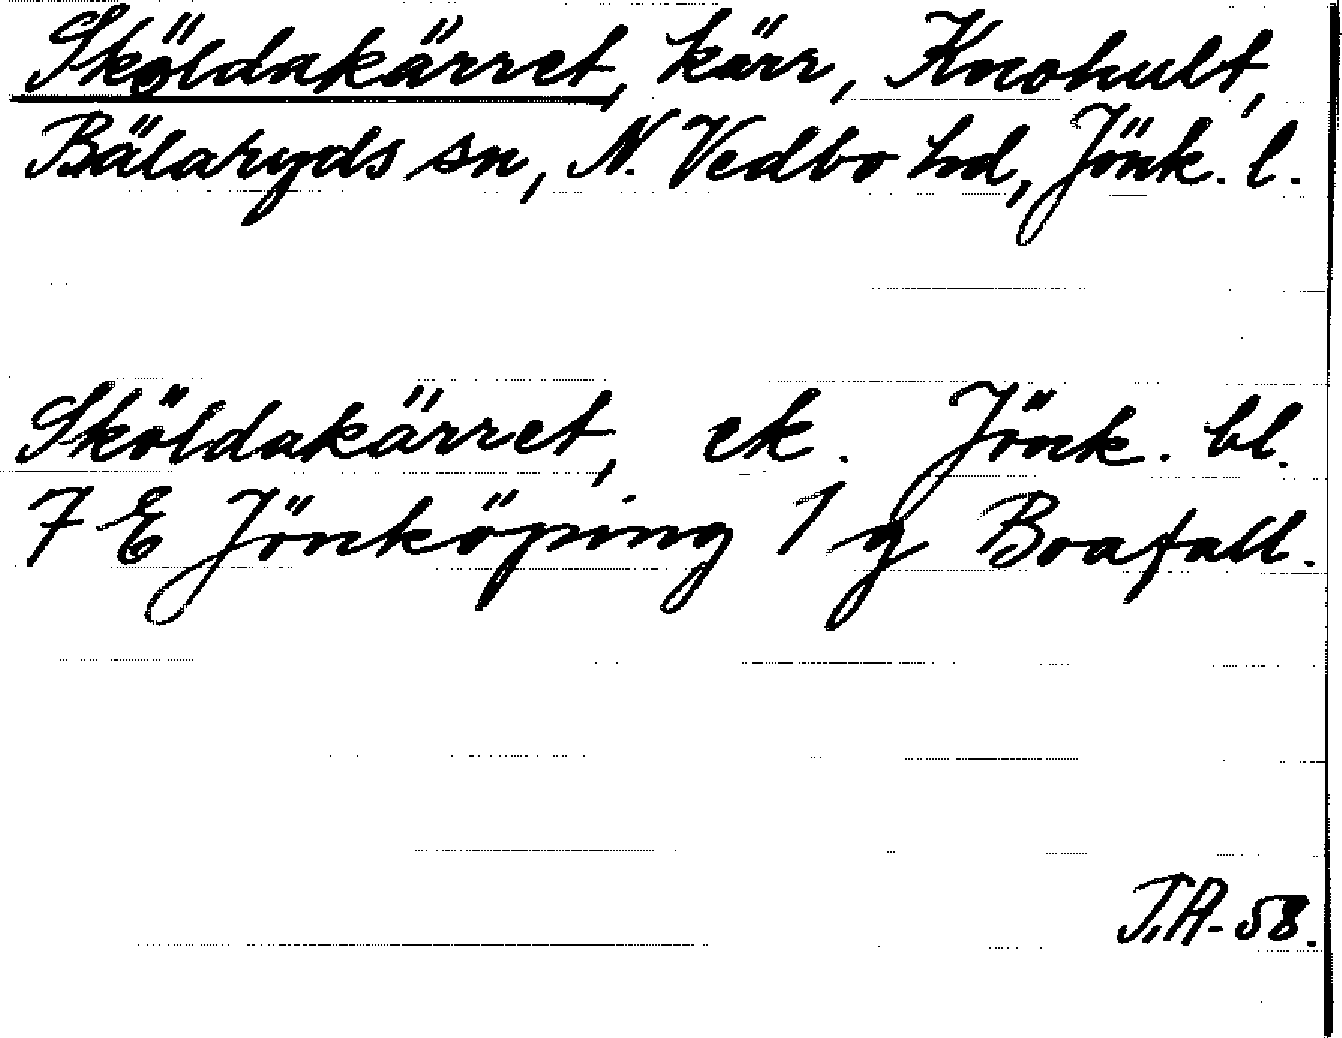 Sköldakärret, kärr, Knohult,
Bälaryds sn, N. Vedbo hd, Jönk. l.
Sköldakärret, ek. Jönk. bl.
7 E Jönköping 1 g Boafall.
T.A-58.